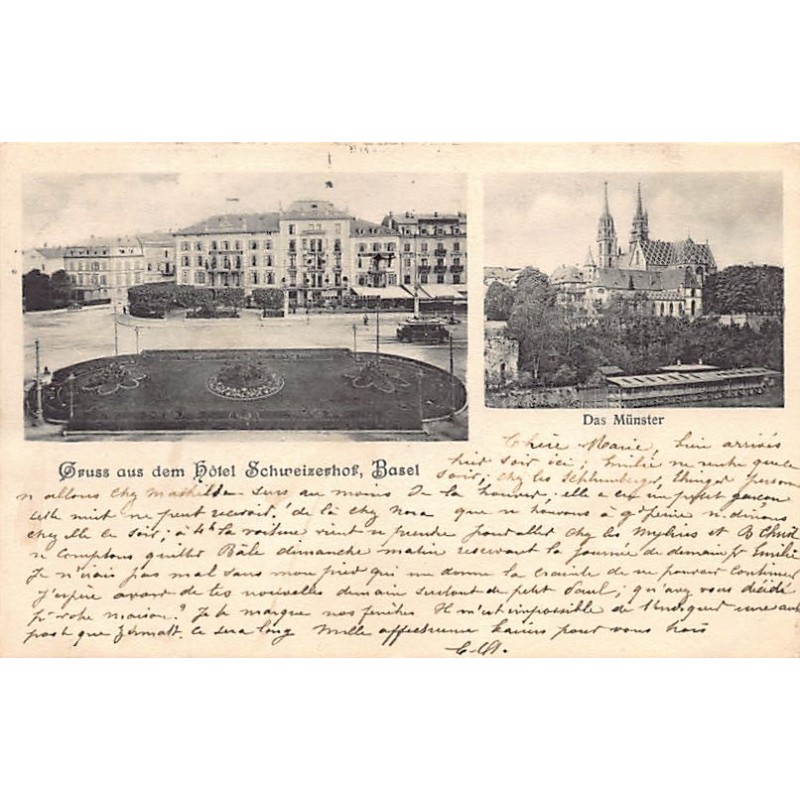 Das Münster
Gruss aus dem Hôtel Schweizerhof, Basel
Chère Marie, bien arrivés
hier soir ici; Emilie ne rentre que ce
soir; chez les Schlumberger,
n allons chez Mathilde surs au moins de la trouver; elle a eu un petit garçon
cette nuit ne peut recevoir! de là chez Nora que n trouvons à g^d peine n dinons
chez elle ce soir; à 4h la voiture vient n prendre pour aller chez les et
n comptons quitter Bâle dimanche matin reservant la journée de demain pr Emilie
Je n'irais pas mal sans mon pied qui me donne la crainte de ne pouvoir continuer
J'espère avoir de tes nouvelles demain surtout de petit Paul; qu'avez vous décidé
pr votre maison? Je te marque nos fenêtres Il m'est impossible de t'indiquer une autre
post que Zermatt. ce sera long Mille affectueux baisers pour vous trois